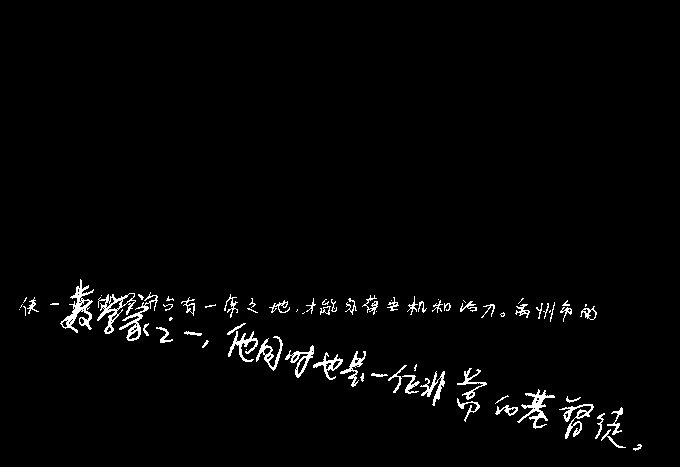 占有一席之地,才能永葆生机和活力。禹州市的
数学家之一,他同时也是一位非常的基督徒。